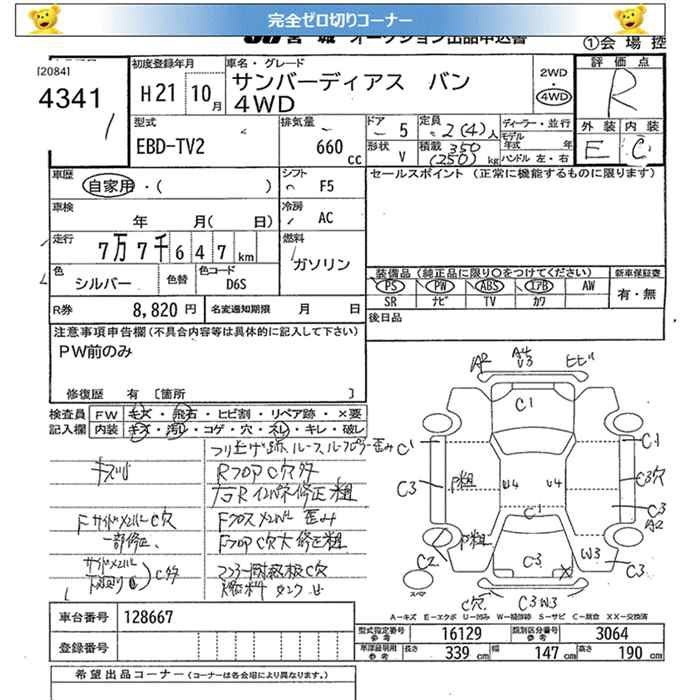 完全ゼロ切りコーナー
JU宮城 オークション出品申込書
①会場控
[2084]
4341
初度登録年月
H21 10月
車名・グレード
サンバーディアス バン
4WD
2WD
4WD
評価点
R
外装 内装
E C
型式
EBD-TV2
排気量
660 cc
ドア
5
形状
V
定員
2(4)人
積載
350
(250)kg
ディーラー・並行
モデル
年式 年
ハンドル 左・右
車歴
自家用・( )
シフト
F5
車検
年 月( 日)
冷房
AC
走行
7万7千647km
燃料
ガソリン
色
シルバー
色替
色コード
D6S
R券
8,820円
名変通知期限 月 日
セールスポイント (正常に機能するものに限ります)
装備品 (純正品に限り○をつけてください)
PS PW ABS エアB AW
SR ナビ TV カワ
新車保証書
有・無
後日品
注意事項申告欄(不具合内容等は具体的に記入して下さい)
PW前のみ
修復歴 有 〔箇所 〕
検査員 FW キズ・飛石・ヒビ割・リペア跡・×要
記入欄 内装 キズ・汚レ・コゲ・穴・スレ・キレ・破レ
RフロアC穴多
右Rインパネ修正粗
Fクロスメンバー歪み
FフロアC穴大修正粗
Fサイドメンバー C穴
一部修正
A2
A4
U3
ヒビ
C1
C1
C1
C3
P粗
U4
U4
C1
C3穴
C3
A2
P粗
C2
C3
W3
C3
スペア
C穴
C3W3
A−キズ E−エクボ U−凹み W−補修跡 S−サビ C−腐食 XX−交換済
車台番号
128667
登録番号
型式指定番号
参考
16129
類別区分番号
参考
3064
長さ 339cm
幅 147cm
高さ 190cm
希望出品コーナー (コーナーは各会場により異なります。)